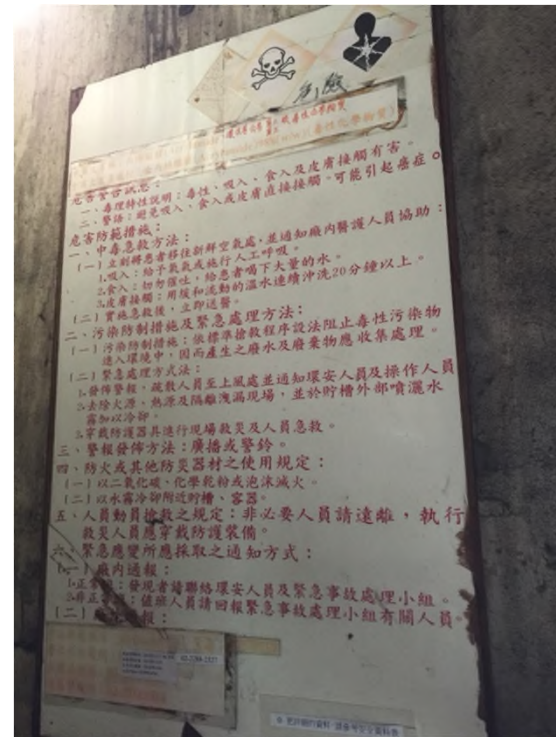 危險
危害警告訊息：
一、毒理特性說明：毒性、吸入、食入及皮膚接觸有害。
二、警語：避免吸入、食入或皮膚直接接觸。可能引起癌症。
危害防範措施：
一、中毒急救方法：
(一)立刻將患者移往新鮮空氣處，並通知廠內醫護人員協助：
1.吸入：給予氧氣或施行人工呼吸。
2.食入：切勿催吐，給患者喝下大量的水。
3.皮膚接觸：用緩和流動的溫水連續沖洗20分鐘以上。
(二)實施急救後，立即送醫。
二、污染防制措施及緊急處理方法：
(一)污染防制措施：依標準搶救程序設法阻止毒性污染物
進入環境中，因而產生之廢水及廢棄物應收集處理。
(二)緊急處理方式法：
1.發佈警報，疏散人員至上風處並通知環安人員及操作人員
2.去除火源、熱源及隔離洩漏現場，並於貯槽外部噴灑水
霧加以冷卻。
3.穿戴防護器具進行現場救災及人員急救。
三、警報發佈方法：廣播或警鈴。
四、防火或其他防災器材之使用規定：
(一)以二氧化碳、化學乾粉或泡沫滅火。
(二)以水霧冷卻附近貯槽、容器。
五、人員動員搶救之規定：非必要人員請遠離，執行
救災人員應穿戴防護裝備。
六、緊急應變所應採取之通知方式：
(一)廠內通報：
1.正常班：發現者請聯絡環安人員及緊急事故處理小組。
2.非正常班：值班人員請回報緊急事故處理小組有關人員。
(二)報：
※ 更詳細的資料 請參考安全資料表